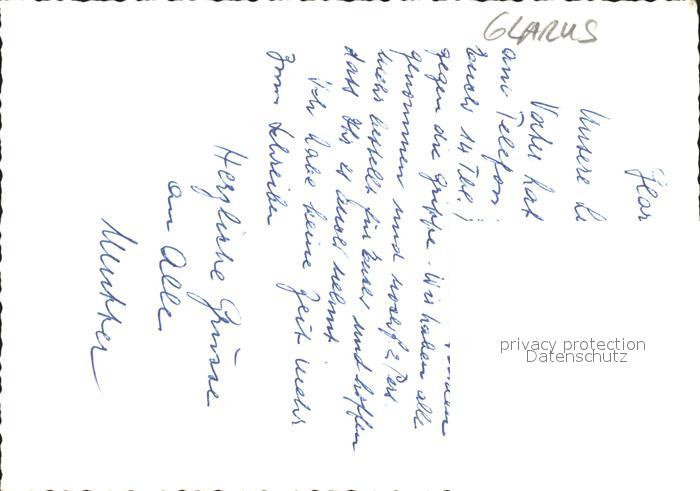 GLARUS
Unsere
Vater hat
am Telefon
Euch 14 Tbl.
gegen die Grippe. Wir haben alle
genommen und noch 2 Pers.
mehr bestellt für Euch und hoffen
dass Ihr es auch nehmt
Ich habe keine Zeit mehr
zum Schreiben
Herzliche Grüsse
an Alle
Mutter
privacy protection
Datenschutz